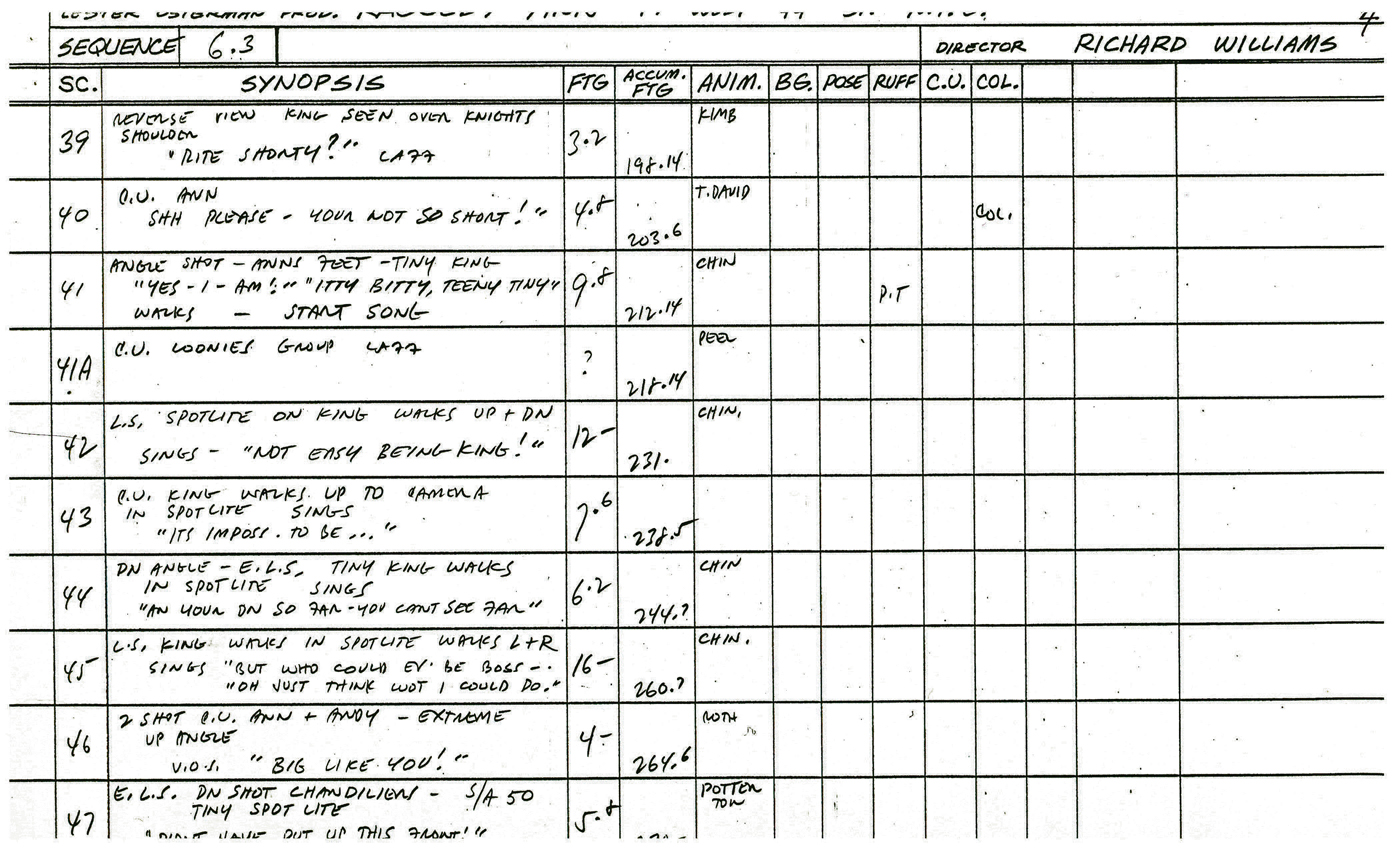 LESTER OSTERMAN PROD.
4
SEQUENCE 6.3 DIRECTOR RICHARD WILLIAMS
SC. SYNOPSIS FTG ACCUM. FTG ANIM. BG. POSE RUFF C.U. COL.
39 REVERSE VIEW KING SEEN OVER KNIGHTS
SHOULDER
"RITE SHORTY?" LAFF 3.2 198.14 KIMB
40 C.U. ANN
SHH PLEASE - YOUR NOT SO SHORT!" 4.8 203.6 T.DAVID COL.
41 ANGLE SHOT - ANNS FEET - TINY KING
"YES - I - AM!" "ITTY BITTY, TEENY TINY"
WALKS - START SONG 9.8 212.14 CHIN P.T
41A C.U. LOONIES GROUP LAFF ? 218.14 PEEL
42 L.S. SPOTLITE ON KING WALKS UP + DN
SINGS - "NOT EASY BEING KING!" 12- 231. CHIN.
43 C.U. KING WALKS UP TO CAMERA
IN SPOTLITE SINGS
"ITS IMPOSS. TO BE ..." 7.6 238.5
44 DN ANGLE - E.L.S. TINY KING WALKS
IN SPOTLITE SINGS
"AN YOUR DN SO FAR - YOU CANT SEE FAR" 6.2 244.7 CHIN
45 L.S. KING WALKS IN SPOTLITE WALKS L+R
SINGS "BUT WHO COULD EV' BE BOSS -.
"OH JUST THINK WOT I COULD DO." 16- 260.7 CHIN.
46 2 SHOT C.U. ANN + ANDY - EXTREME
UP ANGLE
V.O.S. "BIG LIKE YOU!" 4- 264.6 ROTH
47 E.L.S. DN SHOT CHANDILIERS - S/A 50
TINY SPOT LITE
"DIDNT HAVE PUT UP THIS FRONT!" 5.8 POTTER
TON